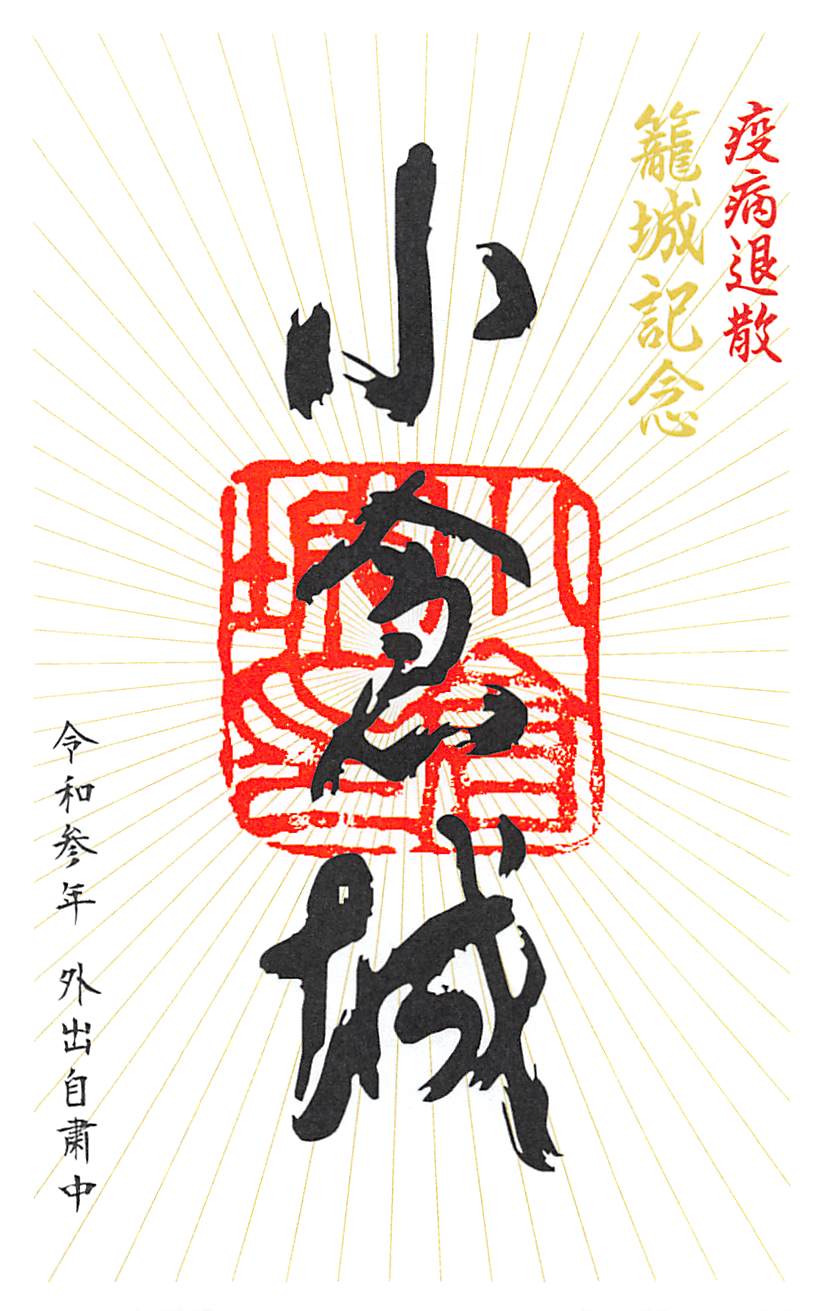 疫病退散
籠城記念
小倉城
令和参年 外出自粛中